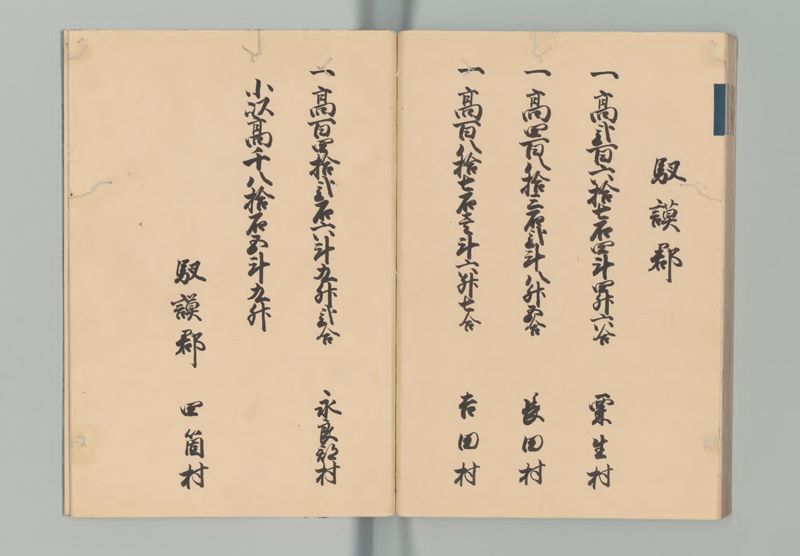 馭謨郡
一高弐百六拾七石四斗四升六合 粟生村
一高四百八拾三石弐斗八升五合 長田村
一高百八拾七石壱斗六升七合 吉田村
一高百四拾弐石六斗九升弐合 永良部村
小以高千八拾石五斗九升
馭謨郡 四箇村